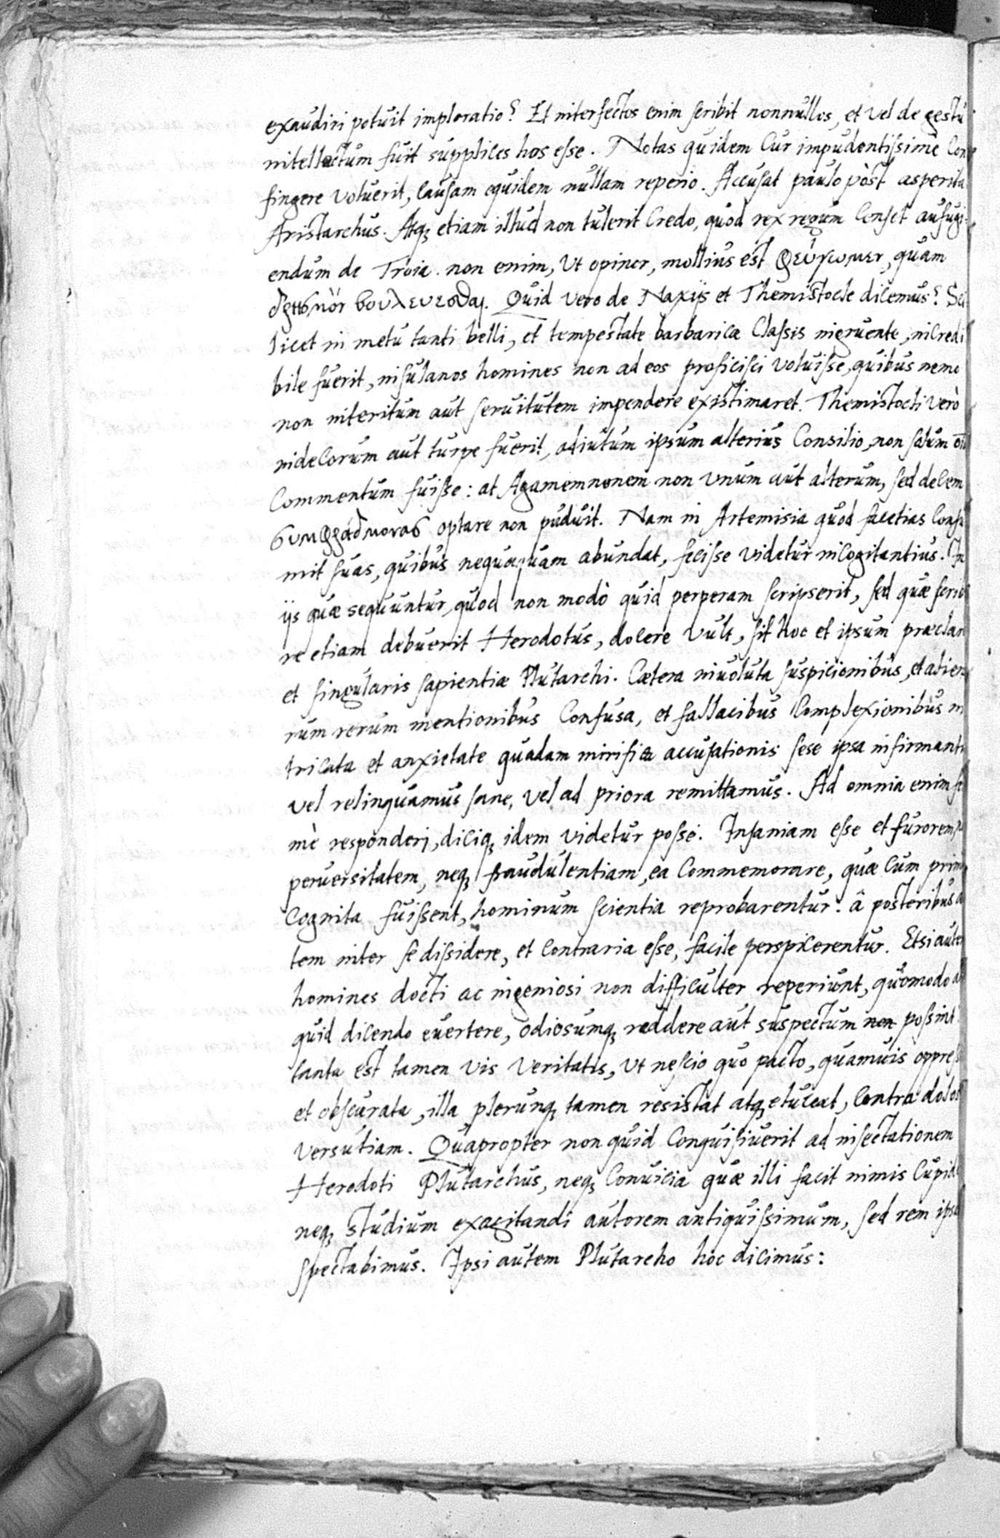 exaudiri potuit imploratio? Et interfectos enim scribit nonnullos, et vel de gestu
intellectum fuit supplices hos esse. Notas quidem Cur impudentissimè Con
fingere voluerit, causam equidem nullam reperio. Accusat paulo pòst asperita
Aristarchus. Atq; etiam illud non tulerit Credo, quòd rex regum Censet aufugi-
endum de Troia. non enim, Ut opinor, mollius est φεύγωμεν, quam
βουλευεσθαι. Quid vero de Naxijs et Themistocle dicemus? Sci
licet in metu tanti belli, et tempestate barbaricæ Classis ingruente, incredi
bile fuerit, insulanos homines non ad eos proficisci voluisse, quibus nemo
non interitum aut servitutem impendere existimaret. Themistocli verò
indecorum aut turpe fuerit, adiutum ipsum alterius Consilio, non solum
Commentum fuisse: at Agamemnonem non unum aut alterum, sed decem
συμφράδμονας optare non puduit. Nam in Artemisia quòd facetias Consu
mit suas, quibus nequaquam abundat, fecisse videtur incogitantius. In
ijs quæ sequuntur, quod non modò quid perperam scripserit, sed quæ scrib
re etiam debuerit Herodotus, docere vult, sit hoc et ipsum præclar
et singularis sapientiæ Plutarchi. Cætera involuta suspicionibus, et alien
rum rerum mentionibus Confusa, et fallacibus Complexionibus in
tricata et anxietate quadam mirificæ accusationis sese ipsa infirmanti
vel relinquamus sane, vel ad priora remittamus. Ad omnia enim fe
mè responderi, dicíq; idem videtur posse. Insaniam esse et furorem,
perversitatem, neq; fraudulentiam, ea Commemorare, quæ Cum prim
Cognita fuissent, hominum scientia reprobarentur: â posteribus a
tem inter se dissidere, et Contraria esse, facile perspicerentur. Etsi aute
homines docti ac ingeniosi non difficulter reperiunt, quomodo al
quid dicendo evertere, odiosumq; reddere aut suspectum non possint
tanta est tamen vis veritatis, ut nescio quo pacto, quamvis oppres
et obscurata, illa plerunq; tamen resistat atq; eluceat, Contra dolos
versutiam. Quapropter non quid Conquisiverit ad insectationem
Herodoti Plutarchus, neq; Convicia quæ illi facit nimis Cupid
neq; studium exagitandi autorem antiquissimum, sed rem ipsa
spectabimus. Ipsi autem Plutarcho hoc dicimus: